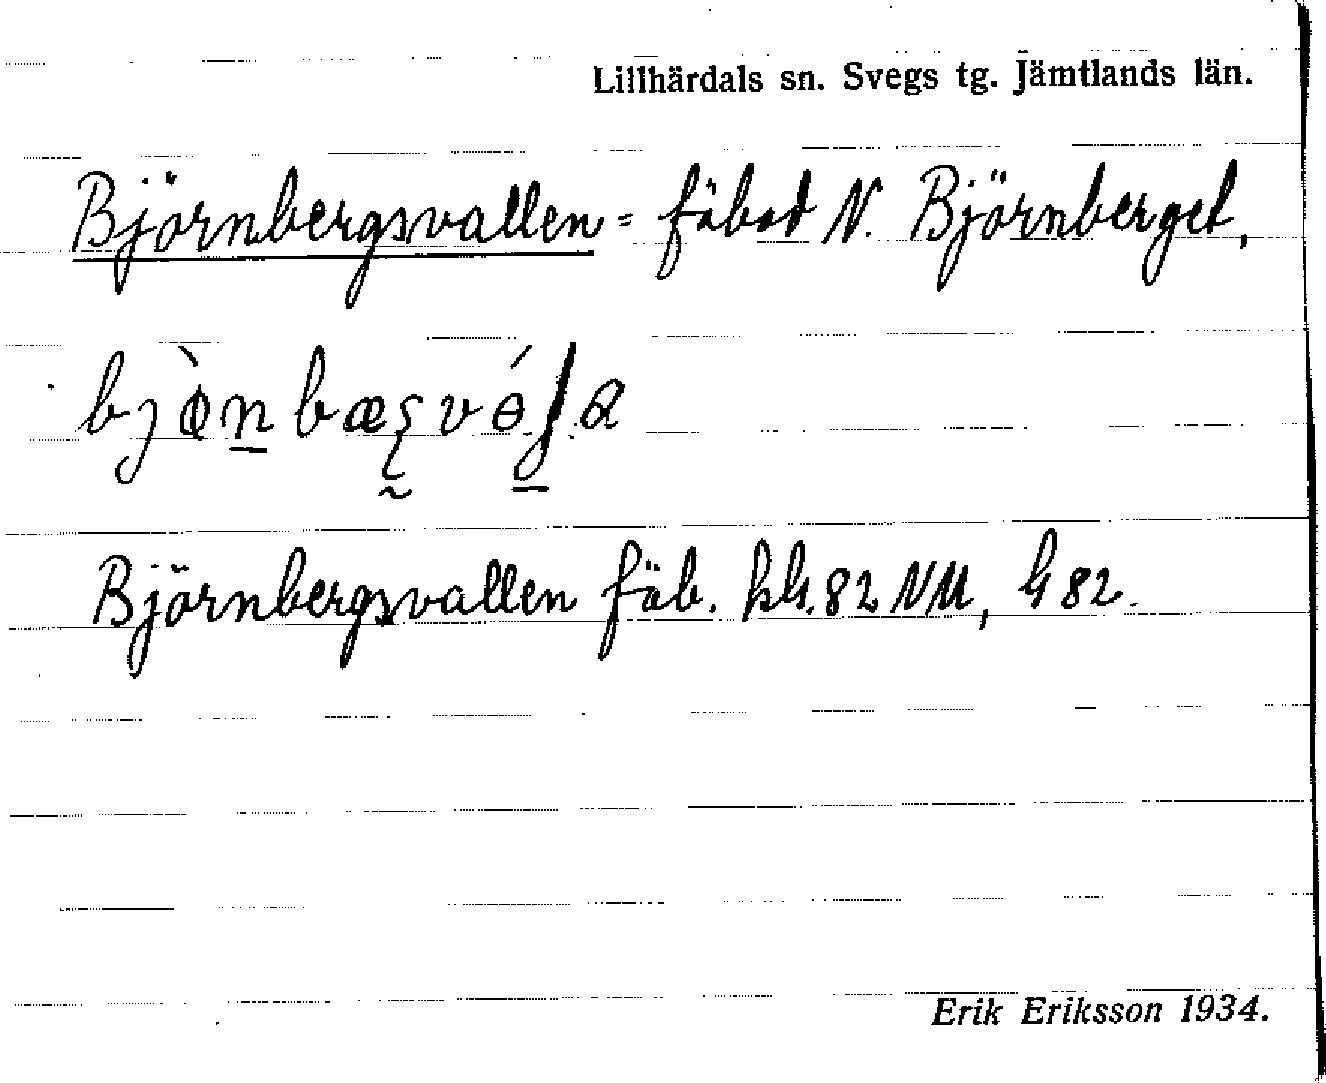 Lillhärdals sn. Svegs tg. Jämtlands län.
Björnbergsvallen = fäbod N. Björnberget,
Björnbergsvallen fäb. hbl. 82 NM, G 82.
Erik Eriksson 1934.